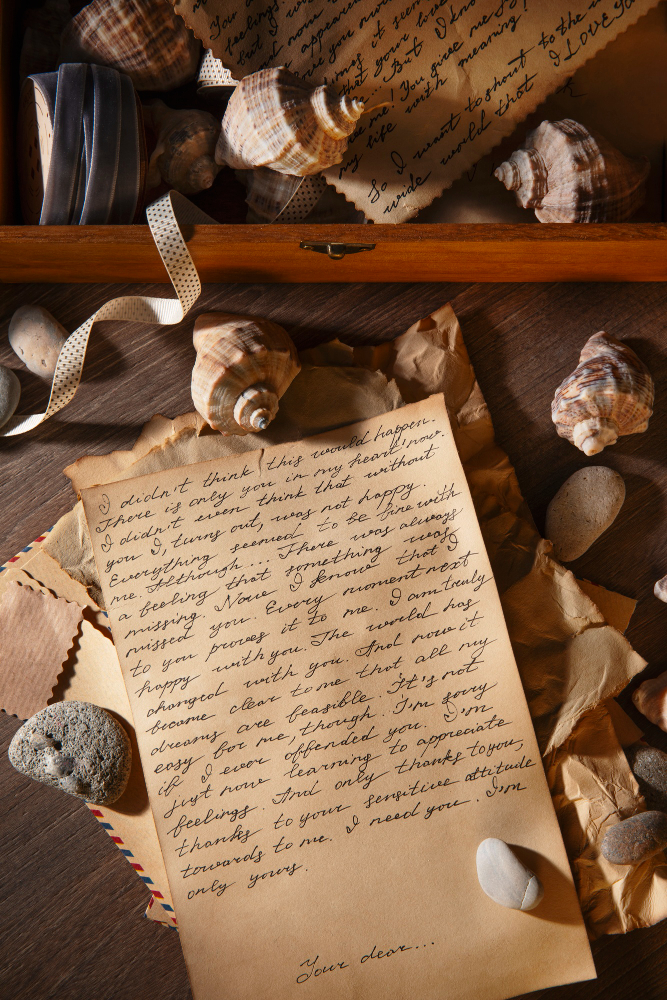 Your
feelings.
but I
and now
appearance
love you
it seem
times
that your love
... But I know
me! You give me
my life with meaning!
So I want to shout to the
wide world that I LOVE
I didn't think this would happen.
There is only you in my heart now.
I didn't even think that without
you I, turns out, was not happy.
Everything seemed to be fine with
me. Although... There was always
a feeling that something was
missing. Now I know that I
missed you. Every moment next
to you proves it to me. I am truly
happy with you. The world has
changed with you. And now it
became clear to me that all my
dreams are feasible. It's not
easy for me, though. I'm sorry
if I ever offended you. I'm
just now learning to appreciate
feelings. And only thanks to you,
thanks to your sensitive attitude
towards to me. I need you. I'm
only yours.
Your dear...